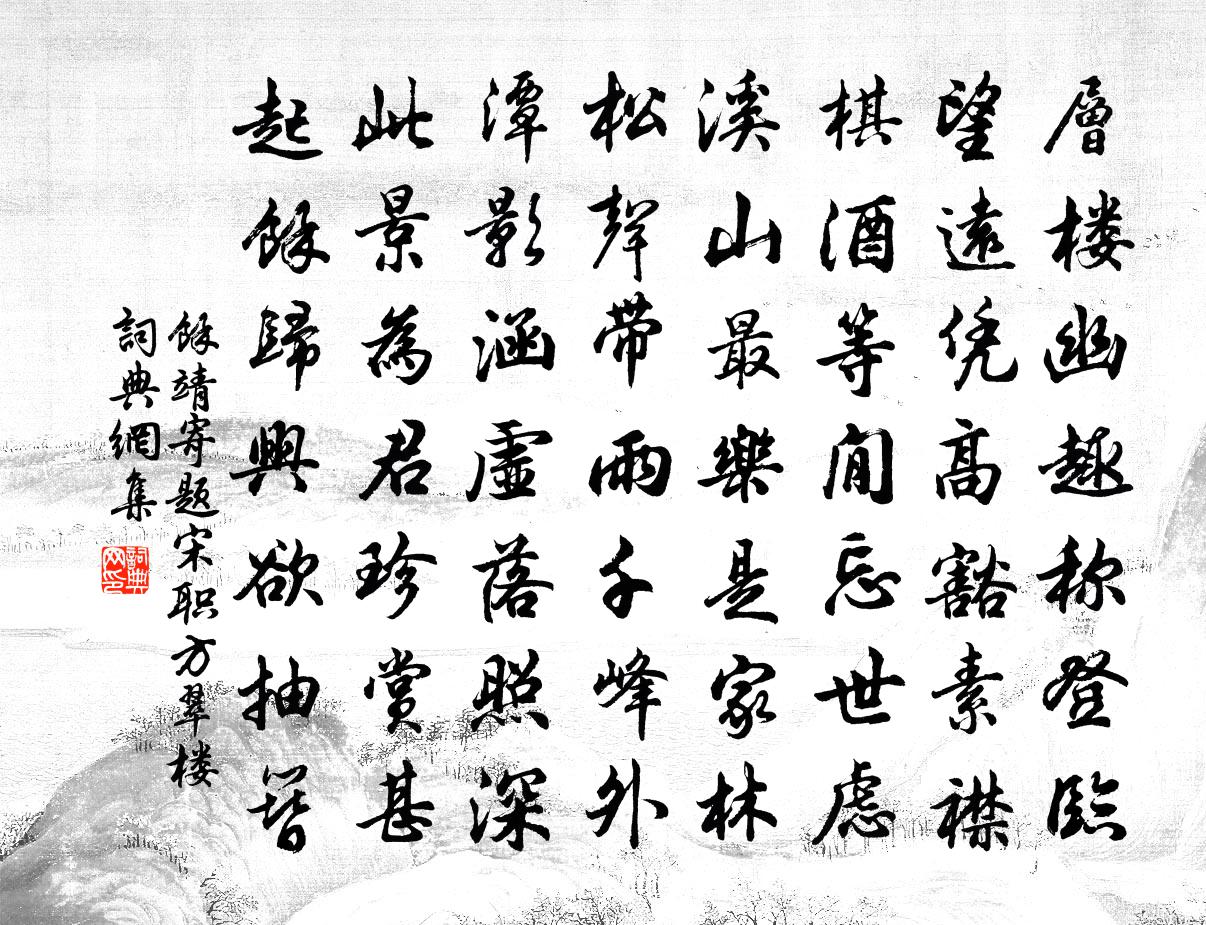 層楼幽趣称登臨
望遠凭高豁素襟
棋酒等閒忘世慮
溪山最樂是家林
松聲带雨千峰外
潭影涵虛落照深
此景為君珍賞甚
起餘歸興欲抽簪
餘靖寄題宋职方翠楼
詞典網集
詞典网印